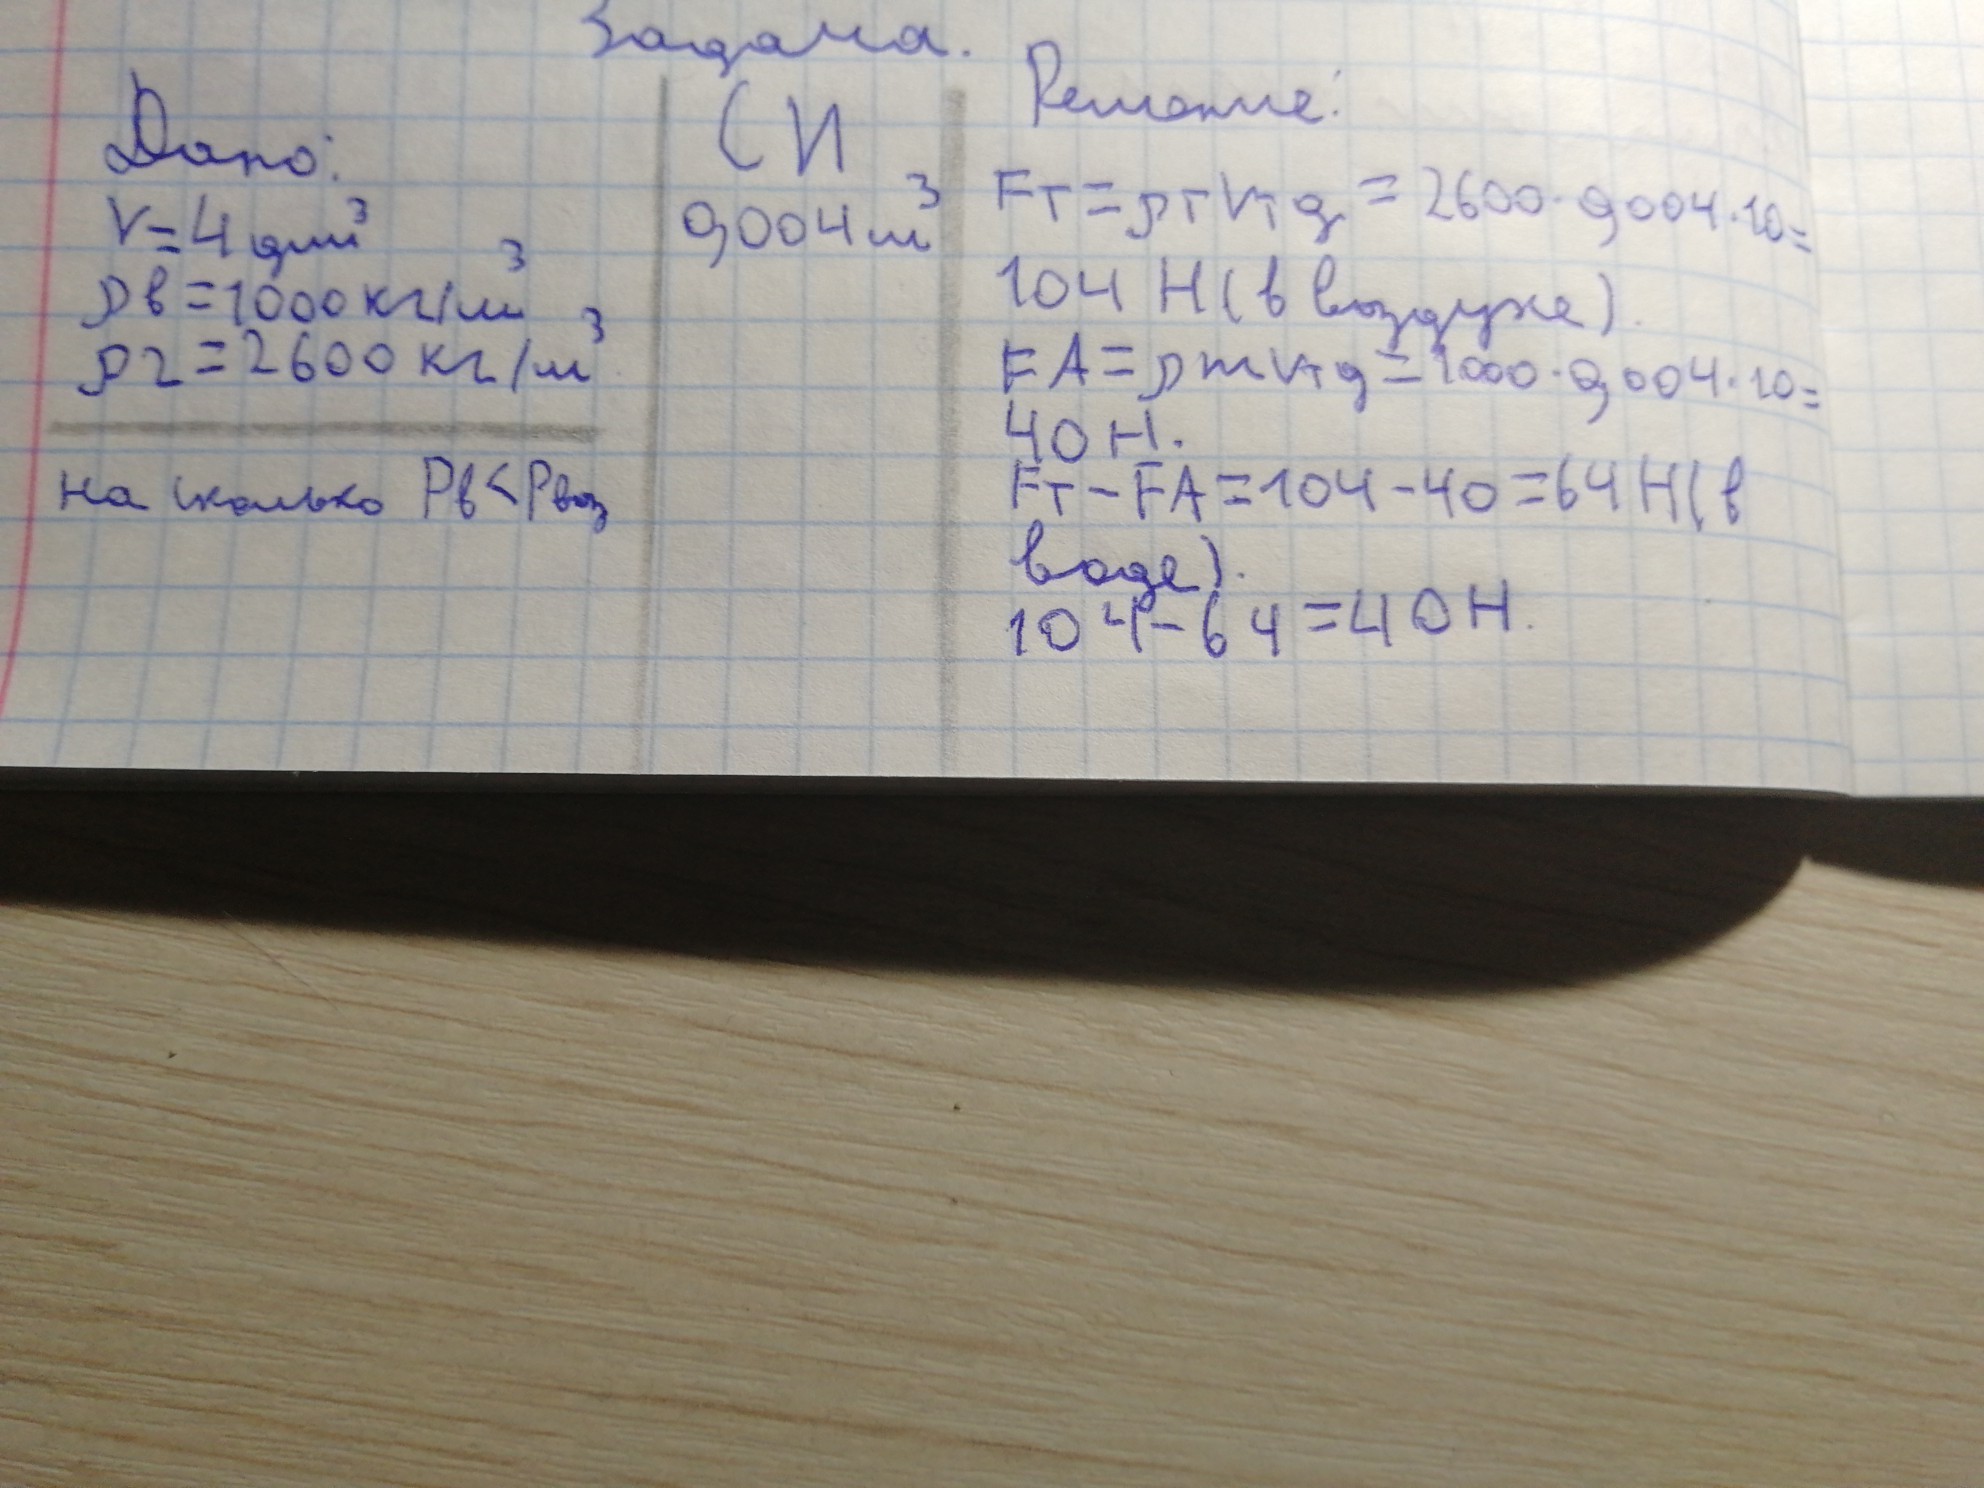 Задача.
Дано:
V=4 дм³
ρв=1000 кг/м³
ρг=2600 кг/м³
на сколько Рв<Рвоз
СИ
0,004 м³
Решение:
Fт=ρтVтg=2600·0,004·10=
104 Н(в воздухе).
FA=ρжVтg=1000·0,004·10=
40 Н.
Fт-FA=104-40=64 Н(в
воде).
104-64=40 Н.